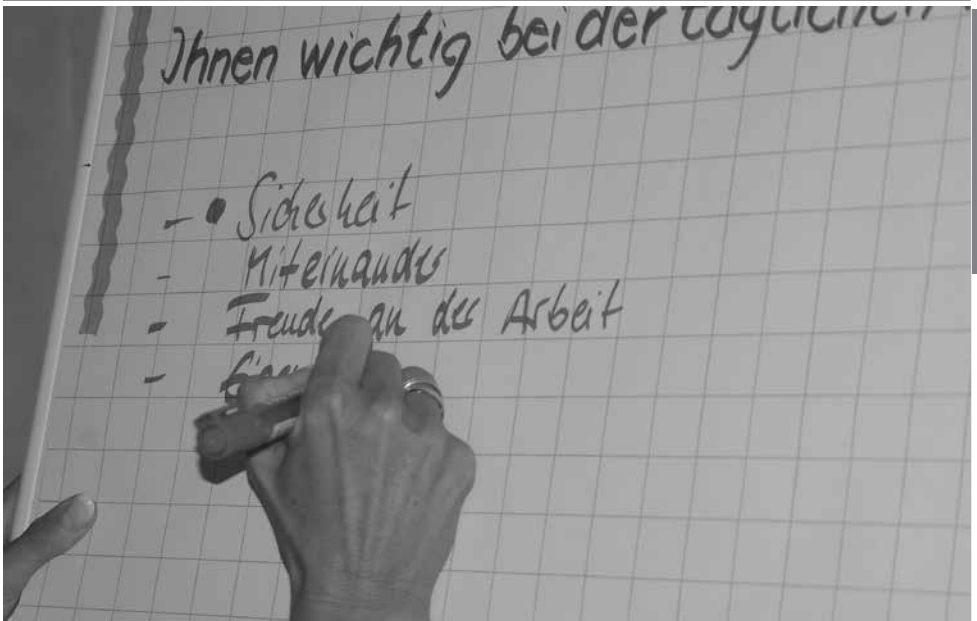 Ihnen wichtig bei der täglichen
- • Sicherheit
- Miteinander
- Freude an der Arbeit
-